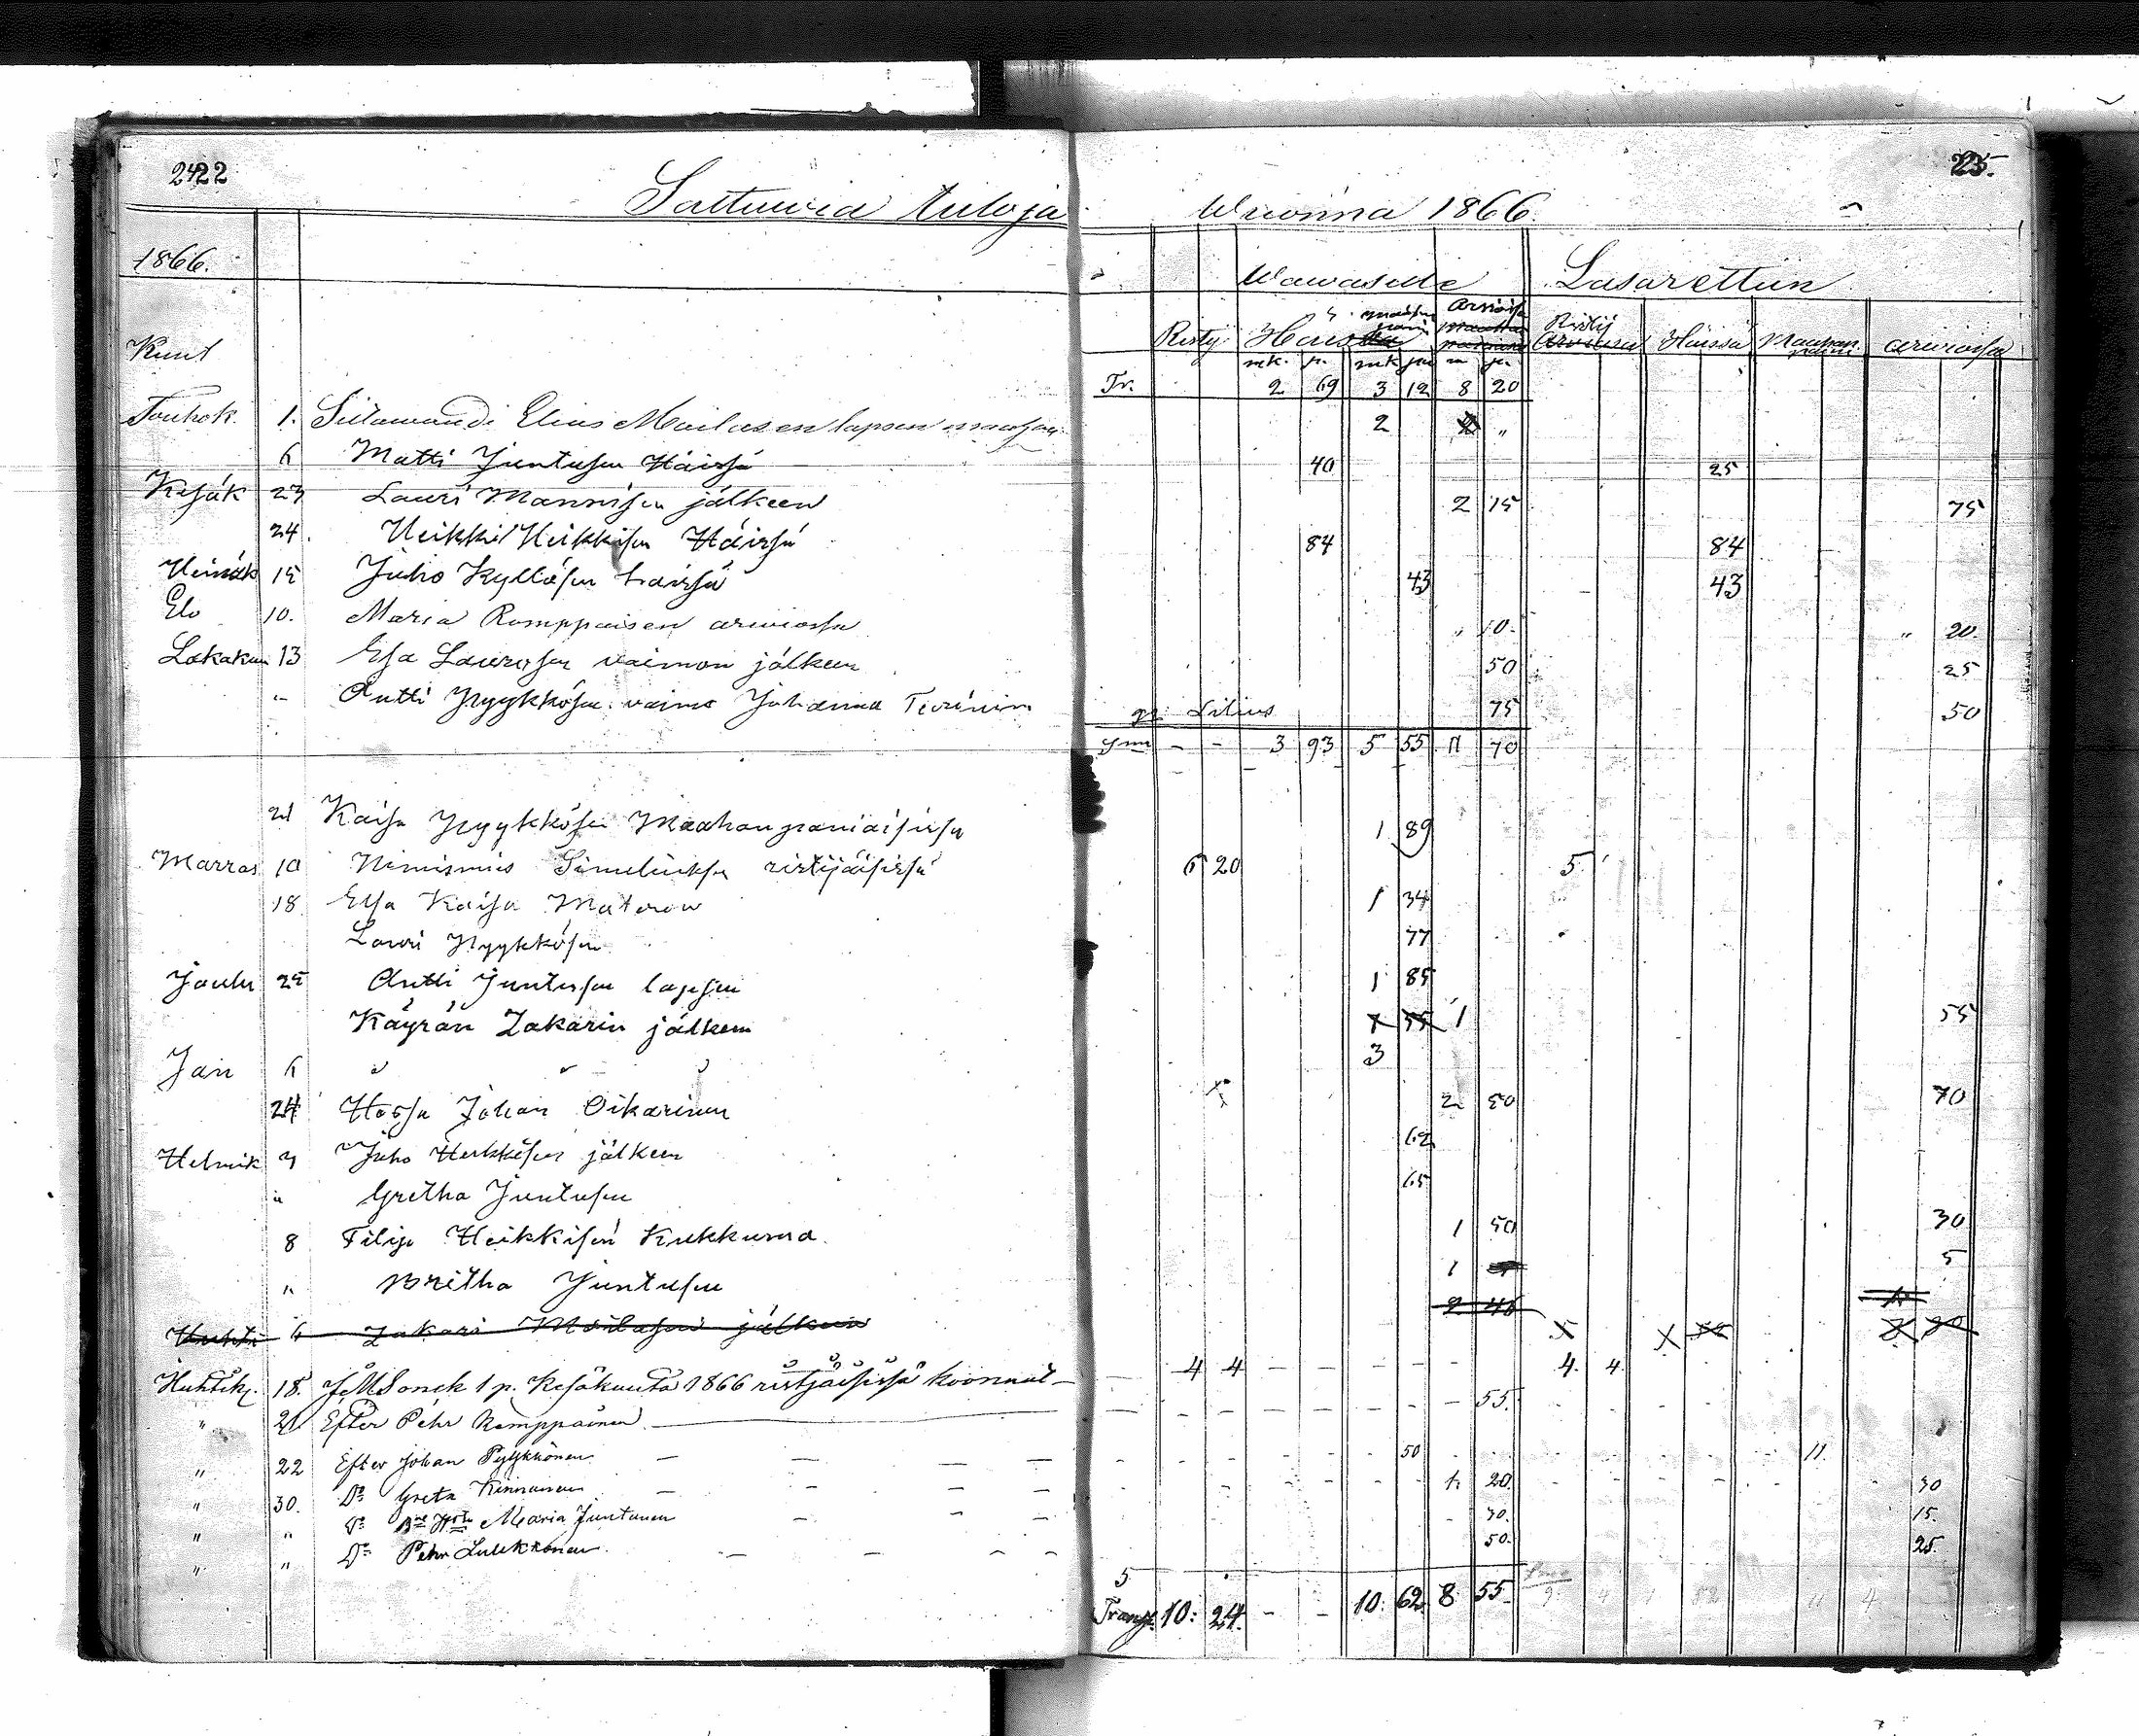 2422 25.
Sattuvia tuloja Wuonna 1866.
1866. Wawasille Lasarettiin
Kuut Risty Häis maahan pani Arvioisa Ristij Häissä Maahan pani arvioisa
mk. p. mk pe m pe.
Tr. 2 69 3 12 8 20
Toukok. 1. Elias Moilasen lapsen 2 "
6 Matti Juntusen Häissä 40 25
Kesäk 23 Lauri Mannisen jälkeen 2 15 75
24. Heikki Heikkisen Häissä 84 84
Heinäk 15 Juho Kyllösen häissä 43 43
Elo 10. Maria Romppaisen arwiossa " 10. " 20.
Lokakuu 13 Esa Laurosen vaimon jälkeen 50 25
" Antti Pyykkösen vaimo Johanna 75 50
ym - - 3 93 5 55 11 70
21 Kaisa Pyykkösen Maahanpaniaisissa 1 89
Marras 10 Nimismies Simeliuksen ristijäisissä 6 20 5
18 Elsa Kaisa 1 34
Lauri Pyykkösen 77
Joulu 25 Antti Juntusen lapsen 1 85
Käyrän Zakarin jälkeen 1 55
Jan 6 " " " 3
24 Hossa Johan Oikarinen 2 50 70
Helmik 3 Juho Heikkisen jälkeen 62
" Gretha Juntusen 65
8 Filip Heikkisen Kukkurma 1 50 30
" Britha Juntusen 1 5
Huhti 6 Zakari Moilasen jälkeen 2 45
Huhtik. 18. J M Sonck 1 p. Kesäkuuta 1866 ristjäisissä koonnut - 4 4 - - - - - 4. 4.
" 21 Efter Pehr Kemppainen 55.
" 22 Efter Johan Pyykkönen 50 11.
" 30. Do Greta Kinnunen 1. 20. 30
" " Do Maria Juntunen 30. 15.
" " Do Pehr Lukkonen 50. 25.
Transp. 10: 24. - - 10. 62 8 55